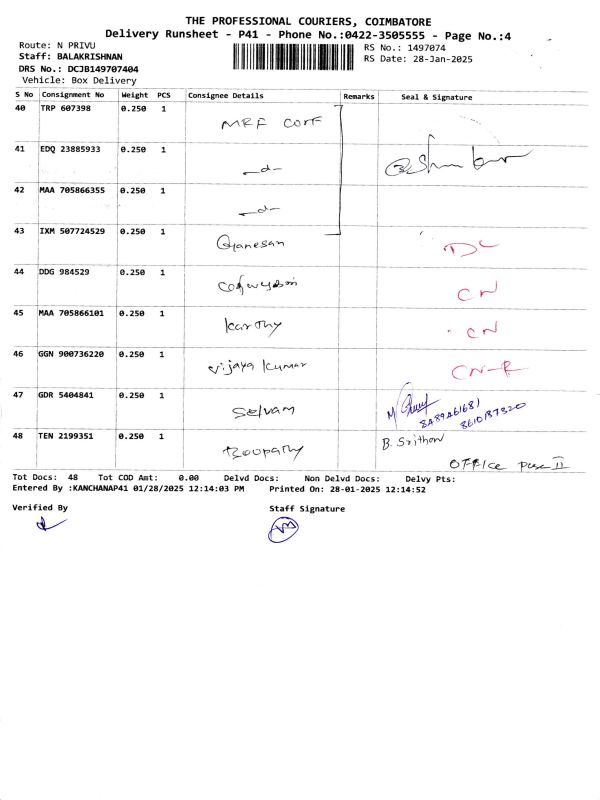 THE PROFESSIONAL COURIERS, COIMBATORE
Delivery Runsheet - P41 - Phone No.:0422-3505555 - Page No.:4
Route: N PRIVU
RS No.: 1497074
Staff: BALAKRISHNAN
RS Date: 28-Jan-2025
DRS No.: DCJB149707404
Vehicle: Box Delivery
S No Consignment No Weight PCS Consignee Details Remarks Seal & Signature
40 TRP 607398 0.250 1 MRF Corf
41 EDQ 23885933 0.250 1 -d-
42 MAA 705866355 0.250 1 -d-
43 IXM 507724529 0.250 1 Ganesan DC
44 DDG 984529 0.250 1 CN
45 MAA 705866101 0.250 1 Karthy CN
46 GGN 900736220 0.250 1 Vijaya Kumar CN-R
47 GDR 5404841 0.250 1 Selvam
48 TEN 2199351 0.250 1 Boopathy B. Srithar
OFFICE
Tot Docs: 48 Tot COD Amt: 0.00 Delvd Docs: Non Delvd Docs: Delvy Pts:
Entered By :KANCHANAP41 01/28/2025 12:14:03 PM Printed On: 28-01-2025 12:14:52
Verified By Staff Signature